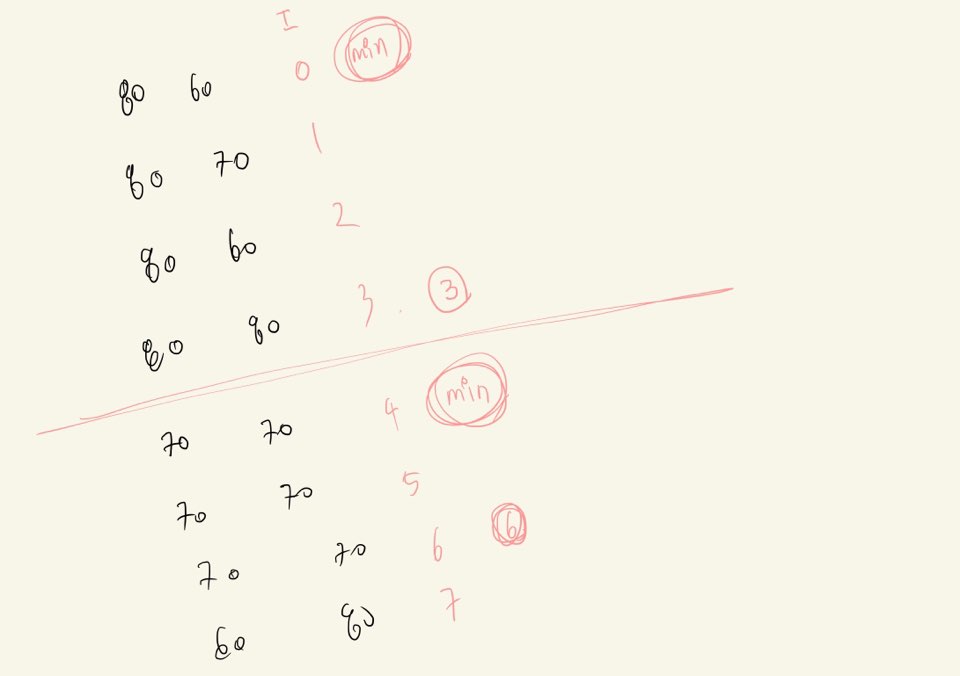 I
80 60 0 min
80 70 1
80 60 2
80 80 3 . 3
70 70 4 min
70 70 5
70 70 6 6
60 80 7